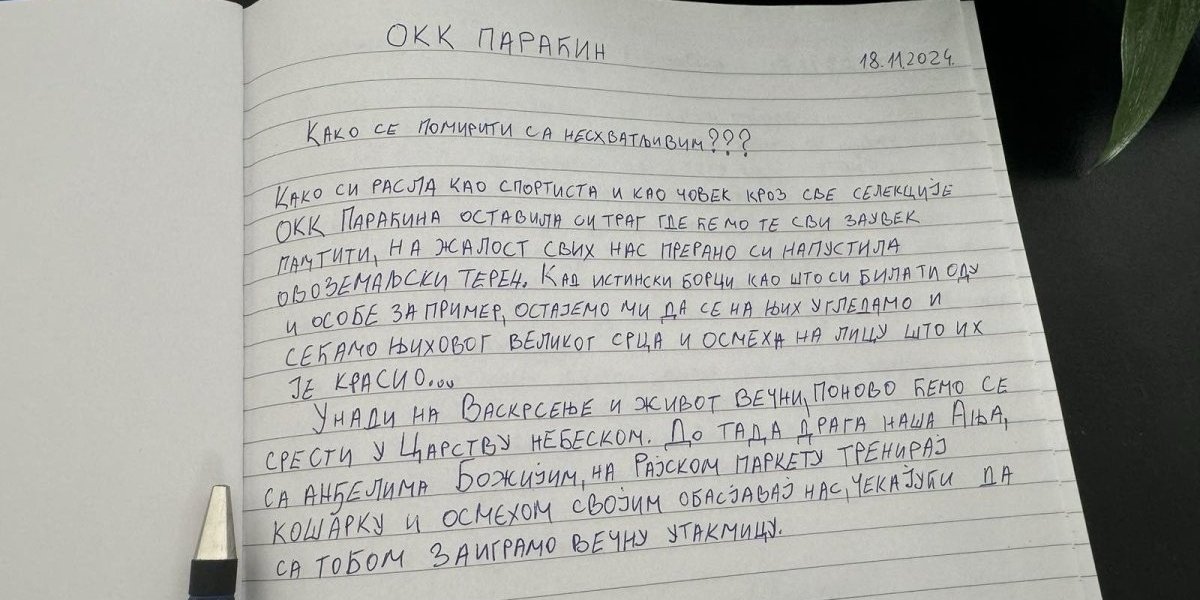 ОКК ПАРАЋИН
18.11.2024.
КАКО СЕ ПОМИРИТИ СА НЕСХВАТЉИВИМ???
КАКО СИ РАСЛА КАО СПОРТИСТА И КАО ЧОВЕК КРОЗ СВЕ СЕЛЕКЦИЈЕ
ОКК ПАРАЋИНА ОСТАВИЛА СИ ТРАГ ГДЕ ЋЕМО ТЕ СВИ ЗАУВЕК
ПАМТИТИ, НА ЖАЛОСТ СВИХ НАС ПРЕРАНО СИ НАПУСТИЛА
ОВОЗЕМАЉСКИ ТЕРЕН. КАД ИСТИНСКИ БОРЦИ КАО ШТО СИ БИЛА ТИ ОДУ
И ОСОБЕ ЗА ПРИМЕР, ОСТАЈЕМО МИ ДА СЕ НА ЊИХ УГЛЕДАМО И
СЕЋАМО ЊИХОВОГ ВЕЛИКОГ СРЦА И ОСМЕХА НА ЛИЦУ ШТО ИХ
ЈЕ КРАСИО...
У НАДИ НА ВАСКРСЕЊЕ И ЖИВОТ ВЕЧНИ, ПОНОВО ЋЕМО СЕ
СРЕСТИ У ЦАРСТВУ НЕБЕСКОМ. ДО ТАДА ДРАГА НАША АЊА,
СА АНЂЕЛИМА БОЖИЈИМ, НА РАЈСКОМ ПАРКЕТУ ТРЕНИРАЈ
КОШАРКУ И ОСМЕХОМ СВОЈИМ ОБАСЈАВАЈ НАС, ЧЕКАЈУЋИ ДА
СА ТОБОМ ЗАИГРАМО ВЕЧНУ УТАКМИЦУ.